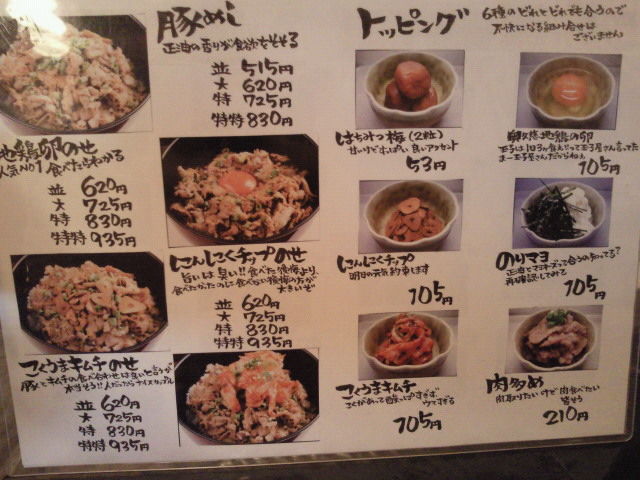 豚めし
正油の香りが食欲をそそる
並 515円
大 620円
特 725円
特特 830円
地鶏卵のせ
人気NO1 食べたらわかる
並 620円
大 725円
特 830円
特特 935円
にんにくチップのせ
旨いは臭い!! 食べた後悔より、
食べたかったのに食べない後悔の方が
大きいぞ
並 620円
大 725円
特 830円
特特 935円
こくうまキムチのせ
豚とキムチの食べ合わせは
並 620円
大 725円
特 830円
特特 935円
トッピング
6種のどれとどれでも合うので
不快になる組み合せは
ございません
はちみつ梅(2粒)
甘いけどすっぱい 良いアクセント
53円
地鶏の卵
105円
にんにくチップ
明日の元気約束します
105円
のりマヨ
正油とマヨネーズって合うの知ってる?
再確認してみて
105円
こくうまキムチ
こくがあって
105円
肉多め
肉取りたいけど肉食べたい
210円